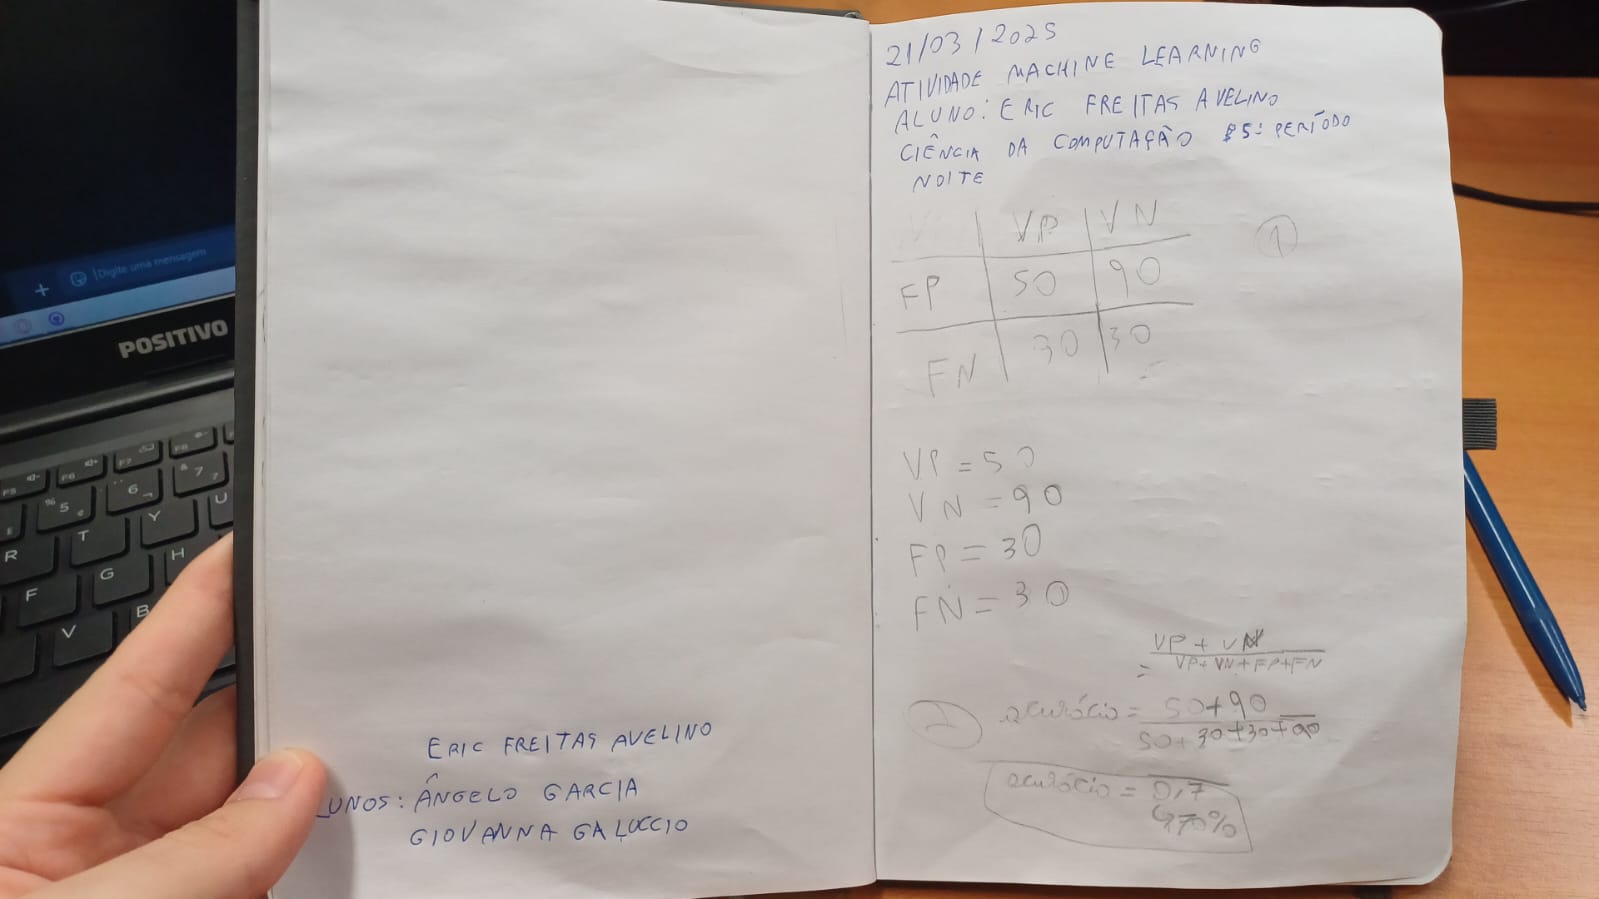 Digite uma mensagem
POSITIVO
ERIC FREITAS AVELINO
LUNOS: ÂNGELO GARCIA
GIOVANNA GALUCCIO
21/03/2025
ATIVIDADE MACHINE LEARNING
ALUNO: ERIC FREITAS AVELINO
CIÊNCIA DA COMPUTAÇÃO 5º PERÍODO
NOITE
1
VP VN
FP 50 90
FN 30 30
VP = 50
VN = 90
FP = 30
FN = 30
VP + VN
VP + VN + FP + FN
=
2 acurácia = 50+90
50+30+30+90
acurácia = 0,7
70%
F5 F6 F7 F8
% 5 6 & 7
E R T Y U
F G H
V B